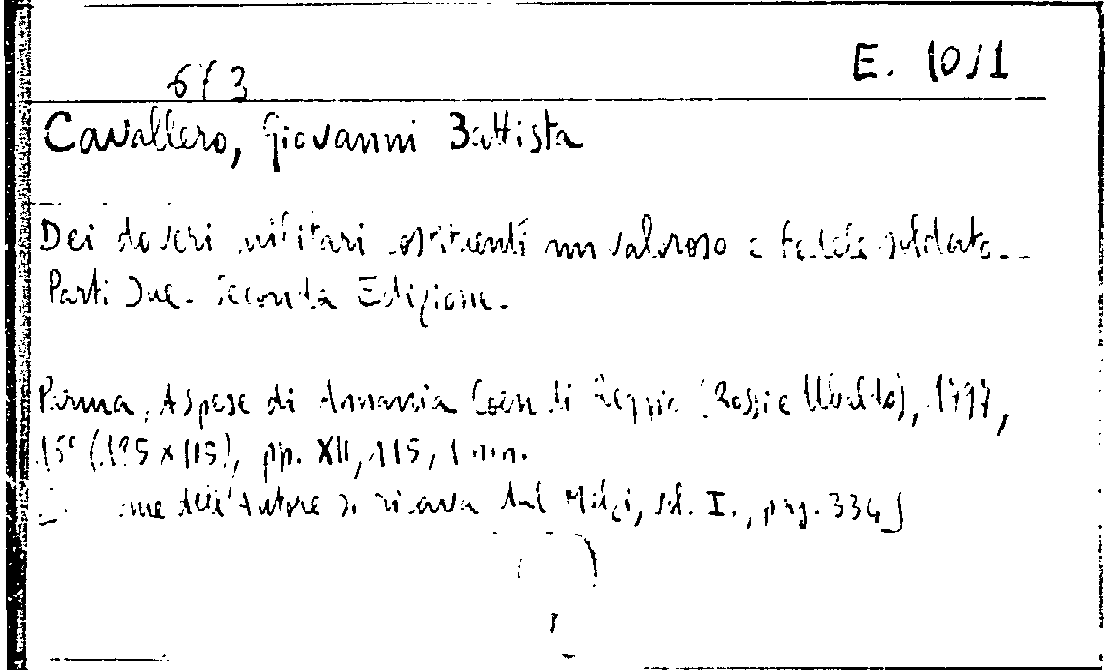 E. 10/1
673
Cavallero, Giovanni Battista
Dei doveri militari costituenti un valoroso e fedele soldato...
Parti Due. Seconda Edizione.
Parma, A spese di Anania Coen di Reggio (Rossi e Ubaldi), 1797,
pp. XII, 115, 1 nn.
dell'Autore si ricava dal Melzi, vol. I., pag. 334]